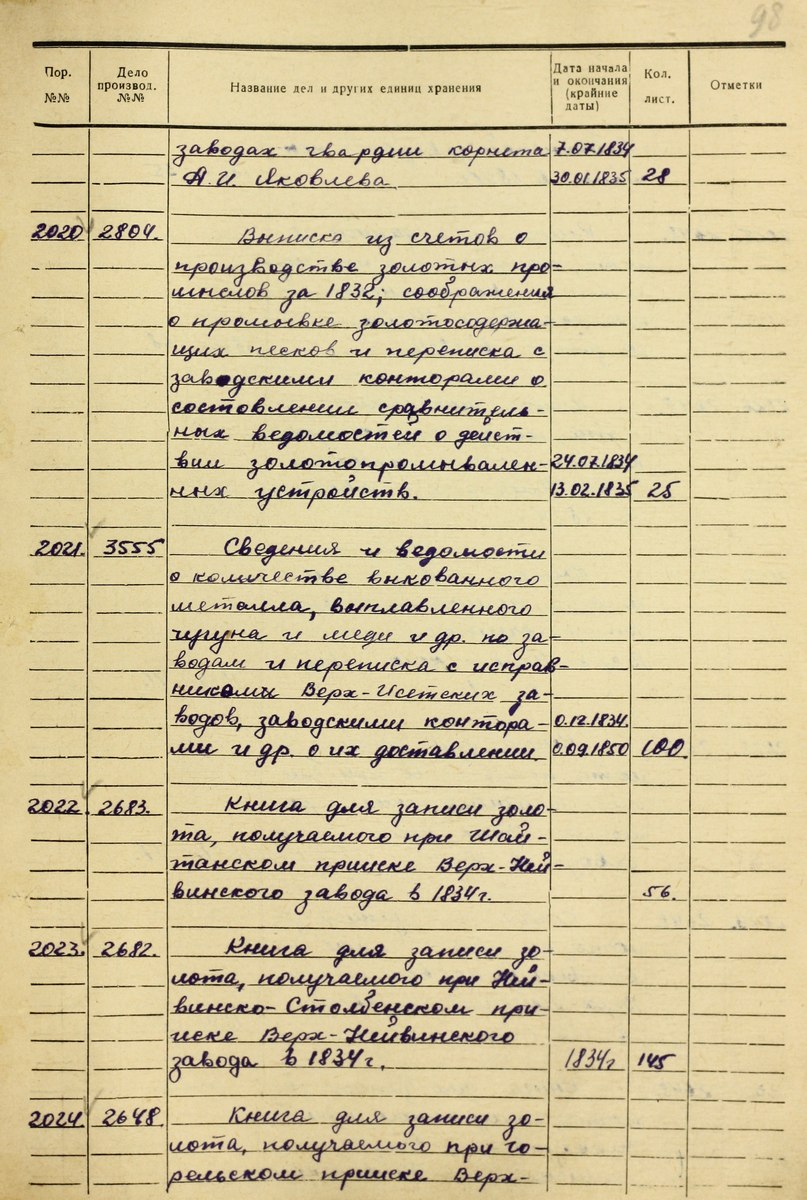 98
Пор. №№ Дело производ. №№ Название дел и других единиц хранения Дата начала и окончания (крайние даты) Кол. лист. Отметки
заводах гвардии корнета 7.07.1834
А.И. Яковлева 30.01.1835 28
2020 2804. Выписка из счетов о
производстве золотых про-
мыслов за 1832; соображения
о промывке золотосодержа-
щих песков и переписка с
заводскими конторами о
составлении сравнитель-
ных ведомостей о дейст-
вии золотопромывален- 24.07.1834
ных устройств. 13.02.1835 25
2021. 3555 Сведения и ведомости
о количестве выкованного
металла, выплавленного
чугуна и меди и др. по за-
водам и переписка с исправ-
никами Верх-Исетских за-
водов, заводскими контора- 0.12.1834.
ми и др. о их доставлении. 0.09.1850 100.
2022. 2683. Книга для записи золо-
та, получаемого при Шай-
танском прииске Верх-Ней-
винского завода в 1834г. 56.
2023. 2682. Книга для записи зо-
лота, получаемого при Ней-
винско-Столбенском при-
иске Верх-Нейвинского
завода в 1834г. 1834г 145
2024. 2648. Книга для записи зо-
лота, получаемого при го-
рельском прииске Верх-